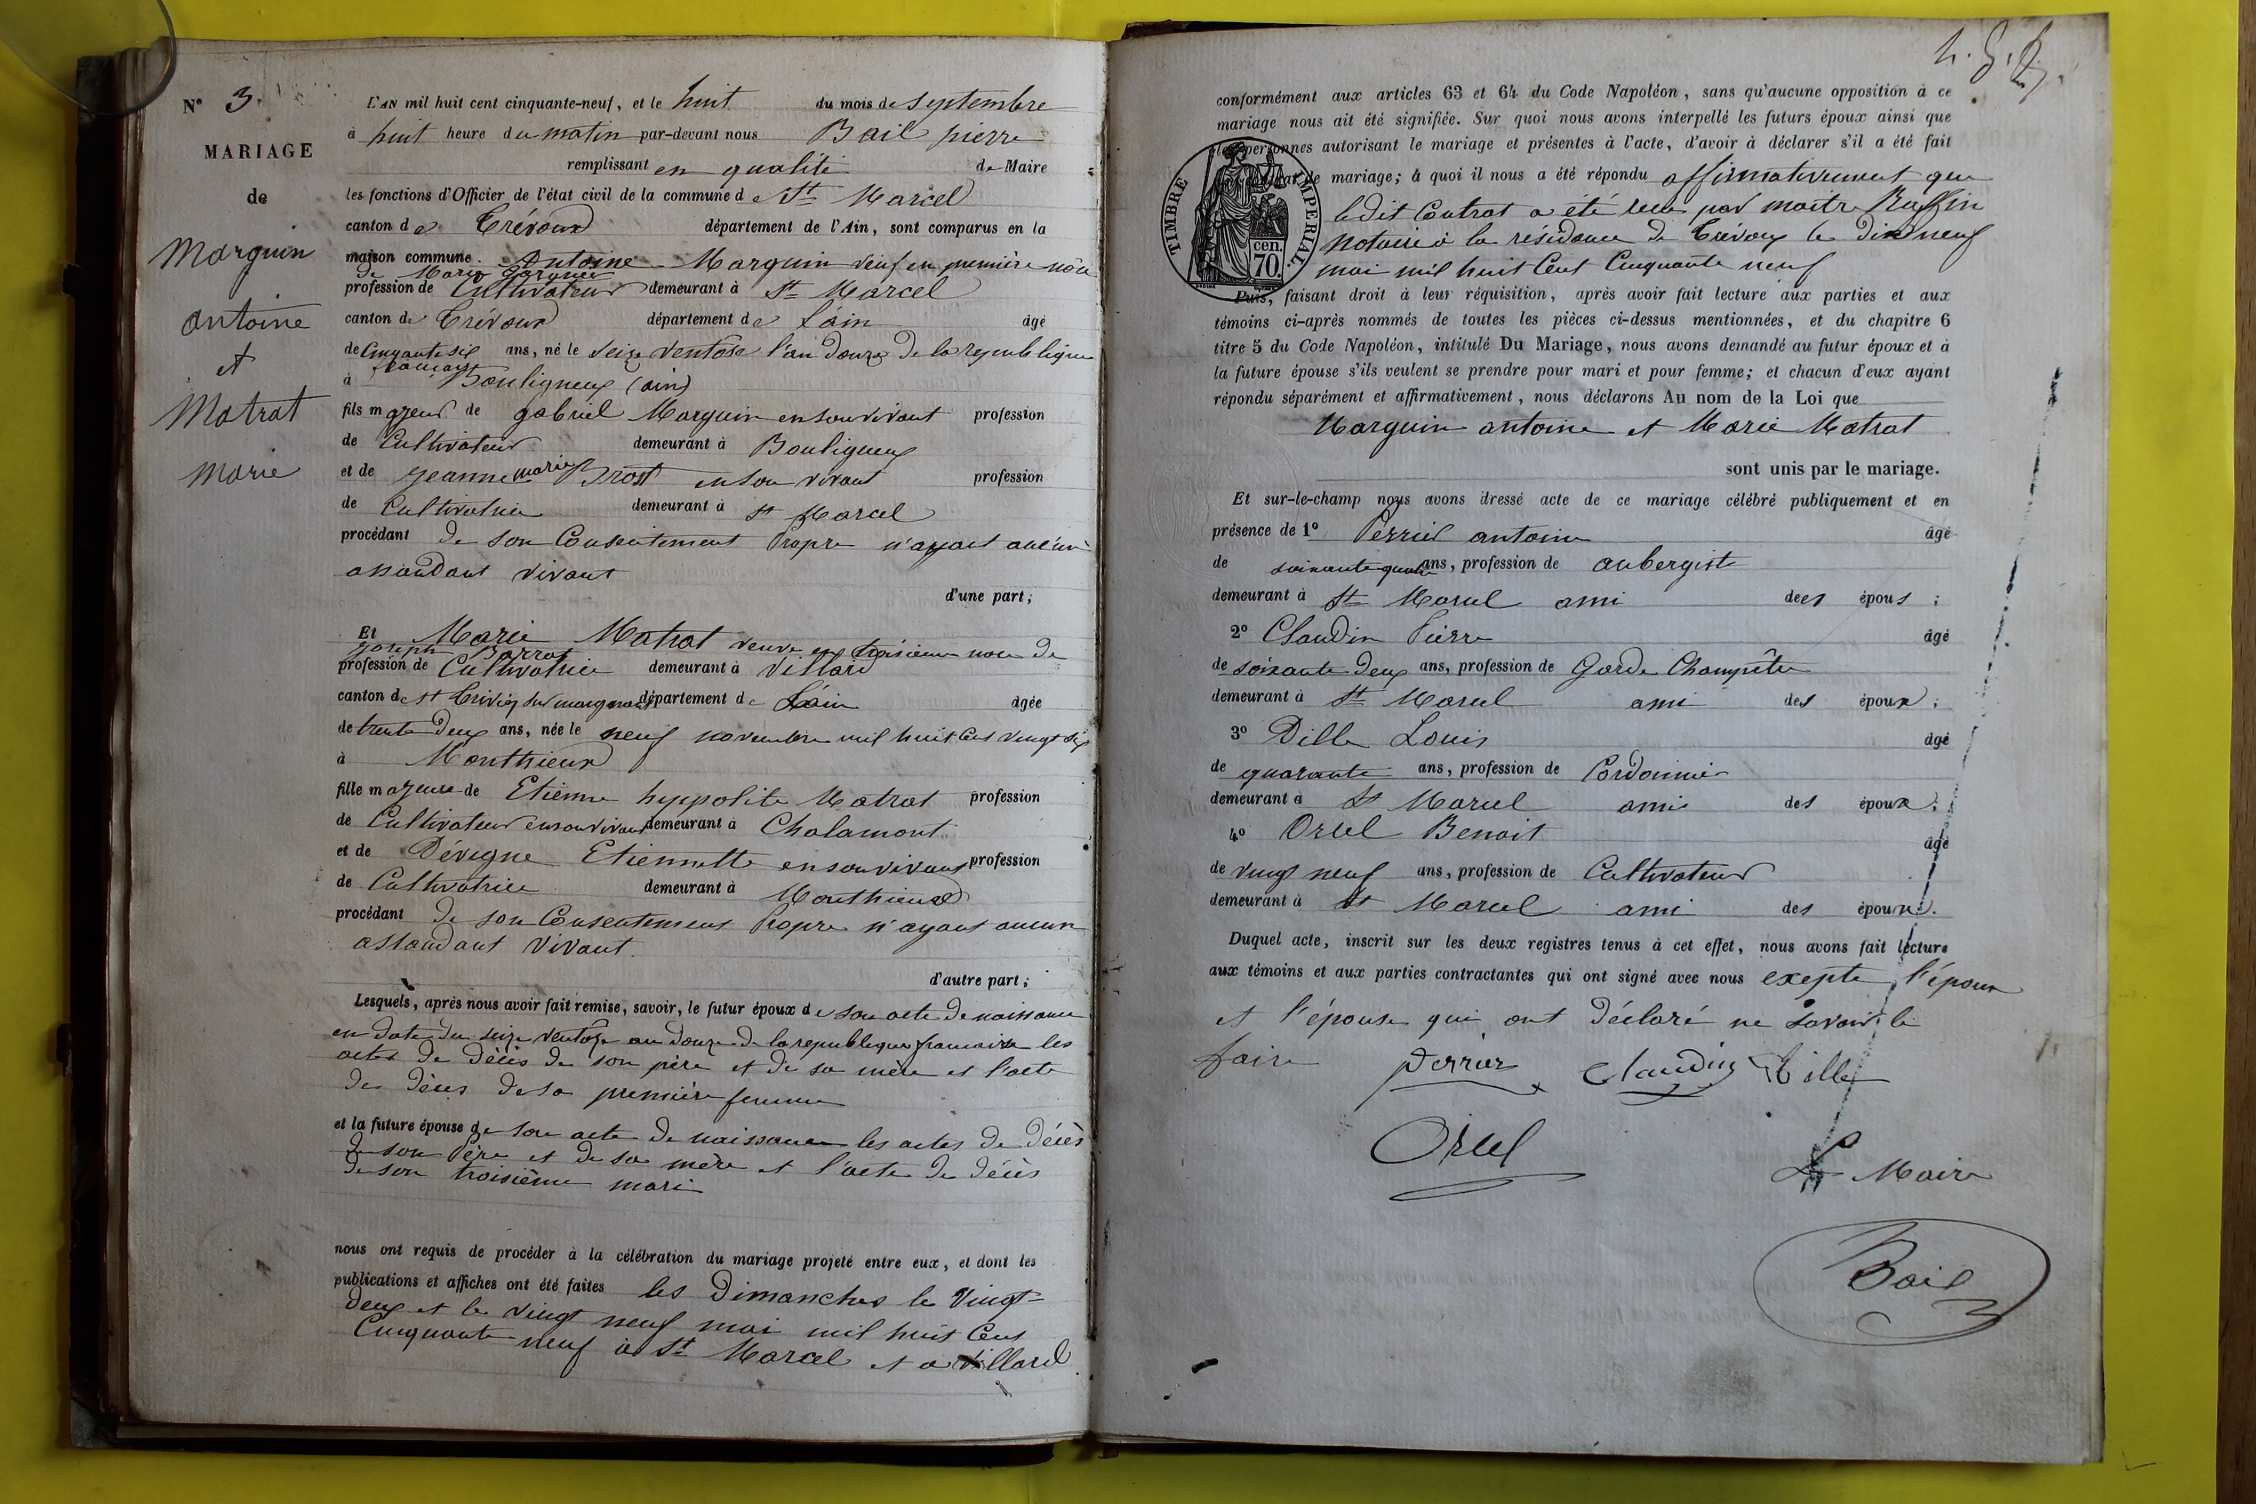 N° 3.
MARIAGE
de
Marguin
antoine
et
Matrat
marie
L'AN mil huit cent cinquante-neuf, et le huit du mois de septembre
à huit heure du matin par-devant nous Bail pierre
remplissant en qualité de Maire
les fonctions d'Officier de l'état civil de la commune de St Marcel
canton de Trévoux département de l'Ain, sont comparus en la
maison commune. Antoine Marguin veuf en première nôce
de Marie
profession de Cultivateur demeurant à St Marcel
canton de Trévoux département de L'ain âgé
de Cinquante six ans, né le seize ventose l'an douze de la republique
francaise
à Bouligneux (ain)
fils majeur de gabriel Marguin en son vivant profession
de Cultivateur demeurant à Bouligneux
et de jeanne marie Brost en son vivant profession
de Cultivatrice demeurant à St Marcel
procédant de son Consentement Propre n'ayant aucun
assandant vivant
d'une part;
Et Marie Matrat veuve en troisieme noce de
joseph Barrat
profession de Cultivatrice demeurant à Villard
canton de St Trivier sur moignans département de L'ain âgée
de trente deux ans, née le neuf novembre mil huit Cent vingt six
à Monthieux
fille majeure de Etienne hyppolite Matrat profession
de Cultivateur en son vivant demeurant à Chalamont
et de Dévigne Etiennette en son vivant profession
de Cultivatrice demeurant à Monthieux
procédant de son Consentement Propre n'ayant aucun
assandant vivant.
d'autre part;
Lesquels, après nous avoir fait remise, savoir, le futur époux de son acte de naissance
en date du seize ventôse an douze de la republique francaise les
actes de décès de son père et de sa mère et l'acte
de décès de sa première femme
et la future épouse de son acte de naissance les actes de décès
de son Père et de sa mère et l'acte de décès
de son troisième mari
nous ont requis de procéder à la célébration du mariage projeté entre eux, et dont les
publications et affiches ont été faites les Dimanches le Vingt-
deux et le vingt neuf mai mil huit Cent
Cinquante neuf à St Marcel et a Villard
conformément aux articles 63 et 64 du Code Napoléon, sans qu'aucune opposition à ce
mariage nous ait été signifiée. Sur quoi nous avons interpellé les futurs époux ainsi que
les personnes autorisant le mariage et présentes à l'acte, d'avoir à déclarer s'il a été fait
de mariage; à quoi il nous a été répondu affirmativement que
ledit Contrat a été recu par maitre Ruffin
notaire à la résidence de Trévoux le dix neuf
mai mil huit Cent Cinquante neuf
TIMBRE IMPERIAL.
cen.
70.
Puis, faisant droit à leur réquisition, après avoir fait lecture aux parties et aux
témoins ci-après nommés de toutes les pièces ci-dessus mentionnées, et du chapitre 6
titre 5 du Code Napoléon, intitulé Du Mariage, nous avons demandé au futur époux et à
la future épouse s'ils veulent se prendre pour mari et pour femme; et chacun d'eux ayant
répondu séparément et affirmativement, nous déclarons Au nom de la Loi que
Marguin antoine et Marie Matrat
sont unis par le mariage.
Et sur-le-champ nous avons dressé acte de ce mariage célébré publiquement et en
présence de 1° Perrier antoine âgé
de soixante quatre ans, profession de aubergiste
demeurant à St Marcel ami des épous;
2° Claudin Pierre âgé
de soixante deux ans, profession de Garde Champêtre
demeurant à St Marcel ami des époux;
3° Dille Louis âgé
de quarante ans, profession de Cordonnier
demeurant à St Marcel ami des époux;
4° Orcel Benoit âgé
de vingt neuf ans, profession de Cultivateur
demeurant à St Marcel ami des époux.
Duquel acte, inscrit sur les deux registres tenus à cet effet, nous avons fait lecture
aux témoins et aux parties contractantes qui ont signé avec nous exepte l'époux
et l'épouse qui ont déclaré ne savoir le
faire Perrier Claudin Dille
Orcel
Le Maire
Bail